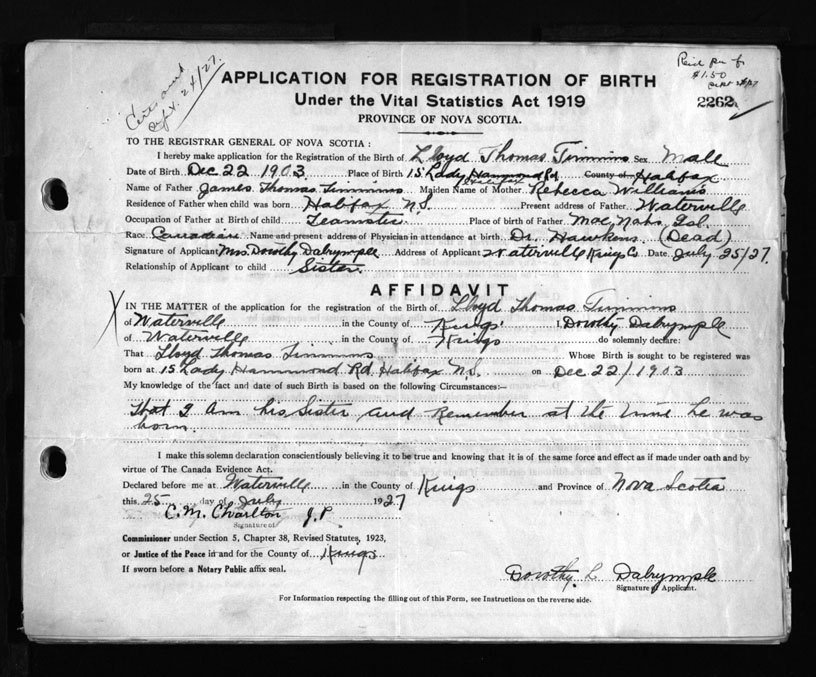 Cert. sent
Sept. 24/27.
Paid
$1.50
Sept 24/27
APPLICATION FOR REGISTRATION OF BIRTH
Under the Vital Statistics Act 1919
2262
PROVINCE OF NOVA SCOTIA.
TO THE REGISTRAR GENERAL OF NOVA SCOTIA :
I hereby make application for the Registration of the Birth of Lloyd Thomas Timmins Sex Male
Date of Birth Dec 22 1903 Place of Birth 15 Lady Hammond Rd Halifax County of Halifax
Name of Father James Thomas Timmins Maiden Name of Mother Rebecca Williams
Residence of Father when child was born Halifax N.S. Present address of Father Waterville
Occupation of Father at Birth of child Teamster Place of birth of Father MacNabs Isl.
Race Canadian Name and present address of Physician in attendance at birth Dr. Hawkins (Dead)
Signature of Applicant Mrs Dorothy Dalrymple Address of Applicant Waterville Kings Co Date July 25/27.
Relationship of Applicant to child Sister
AFFIDAVIT
X IN THE MATTER of the application for the registration of the Birth of Lloyd Thomas Timmins
of Waterville in the County of Kings I, Dorothy Dalrymple
of Waterville in the County of Kings do solemnly declare:
That Lloyd Thomas Timmins Whose Birth is sought to be registered was
born at 15 Lady Hammond Rd, Halifax N.S. on Dec 22/1903
My knowledge of the fact and date of such Birth is based on the following Circumstances:—
That I am his Sister and Remember at the time he was
born.
I make this solemn declaration conscientiously believing it to be true and knowing that it is of the same force and effect as if made under oath and by
virtue of The Canada Evidence Act.
Declared before me at Waterville in the County of Kings and Province of Nova Scotia
this 25 day of July 1927
C. M. Charlton J.P.
Signature of
Commissioner under Section 5, Chapter 38, Revised Statutes, 1923,
or Justice of the Peace in and for the County of Kings
If sworn before a Notary Public affix seal.
Dorothy L Dalrymple
Signature of Applicant.
For Information respecting the filling out of this Form, see Instructions on the reverse side.